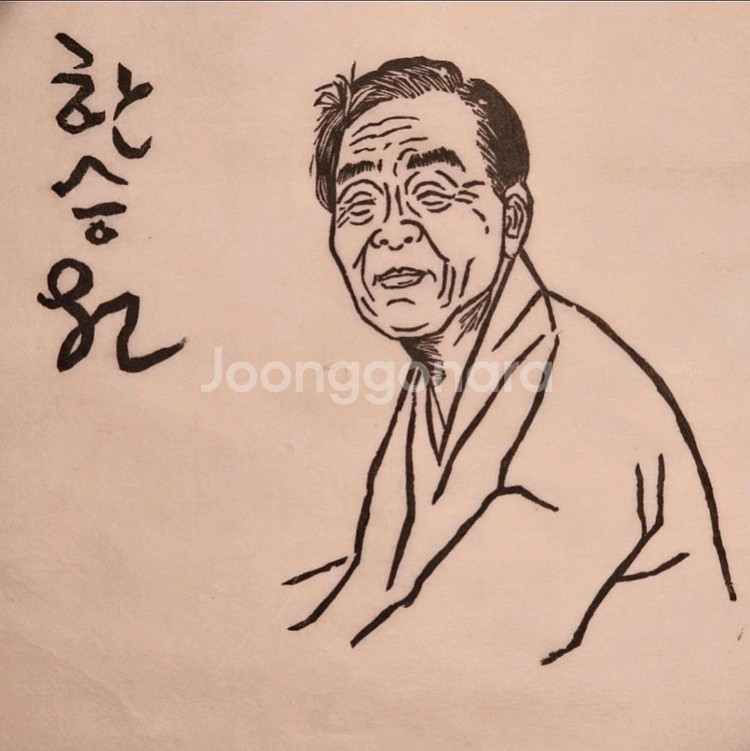 한승원
Joonggonara